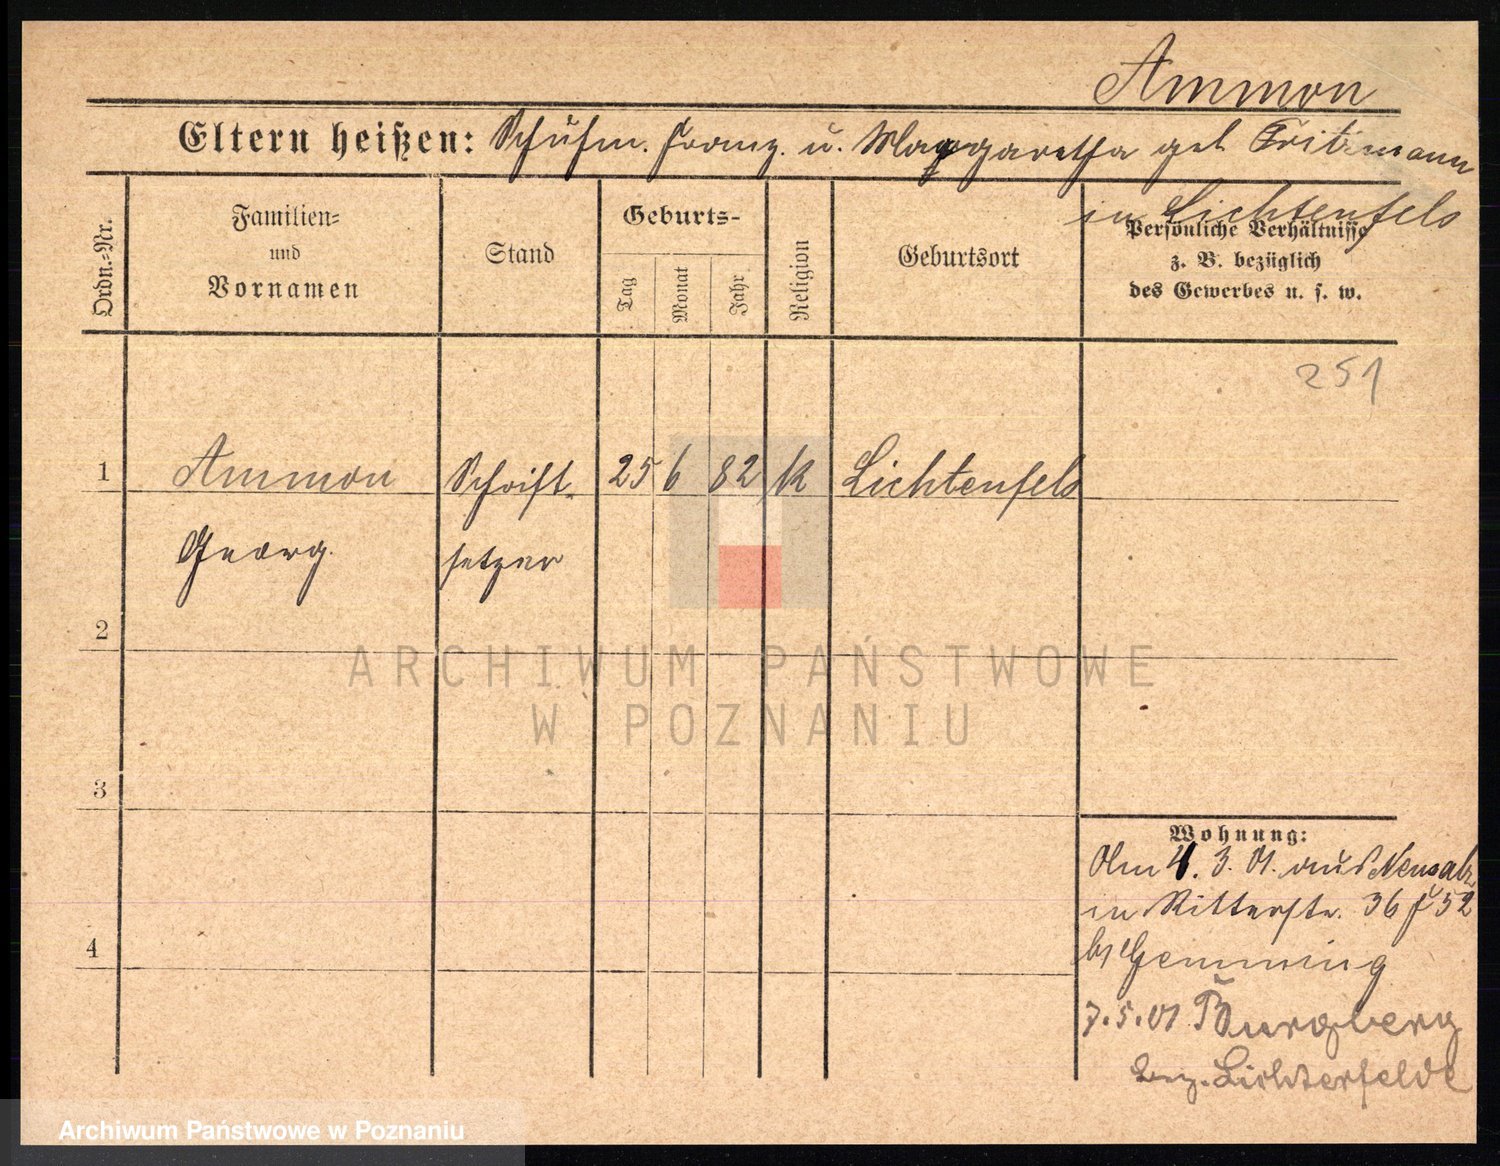 Ammon
Eltern heißen: Schuhm. Franz. u. Margaretha geb Fritzmann
in Lichtenfels
Ordn.-Nr.
Familien-
und
Vornamen
Stand
Geburts-
Tag
Monat
Jahr
Religion
Geburtsort
Persönliche Verhältnisse
z. B. bezüglich
des Gewerbes u. s. w.
251
1 Ammon Schrift- 25 6 82 k Lichtenfels
Georg. setzer
2
ARCHIWUM PAŃSTWOWE
W POZNANIU
3
Wohnung:
4. 3. 01. aus Neusalz
in Ritterstr. 36
4
b/ Gemming
7.5.01 Burgberg
bez. Lichterfelde
Archiwum Państwowe w Poznaniu